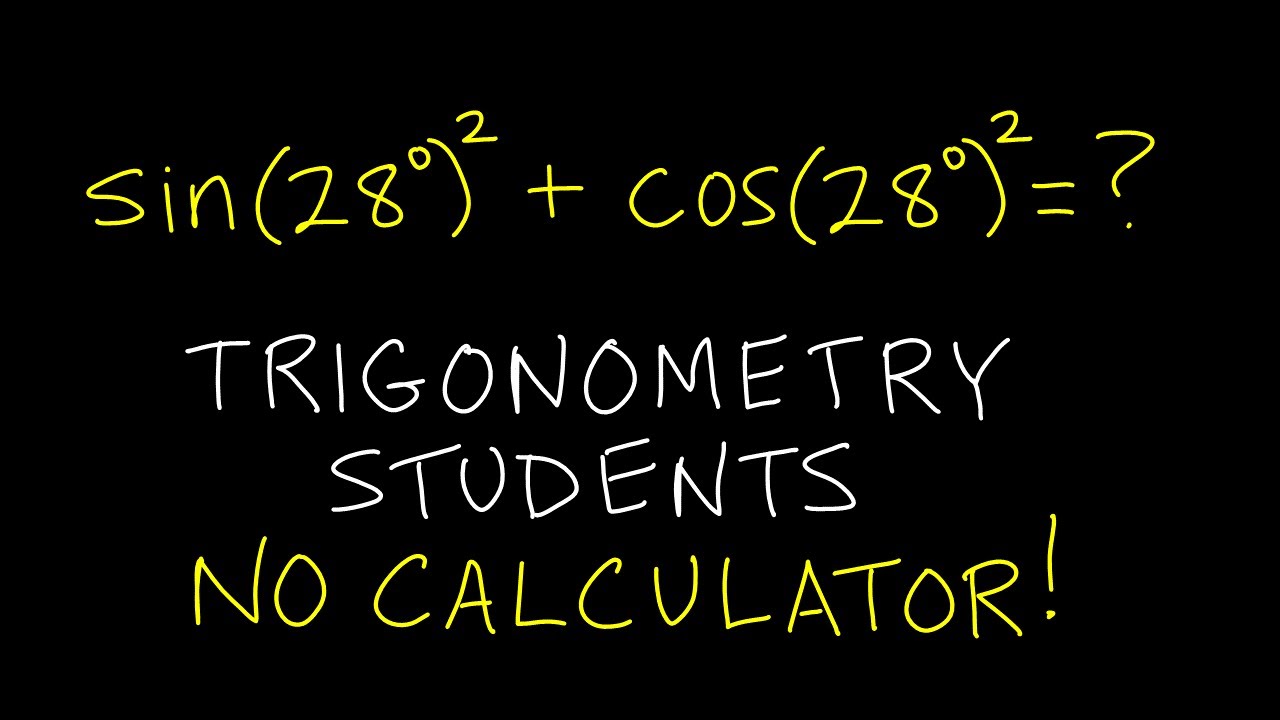 sin(28°)² + cos(28°)² = ?
TRIGONOMETRY
STUDENTS
NO CALCULATOR!